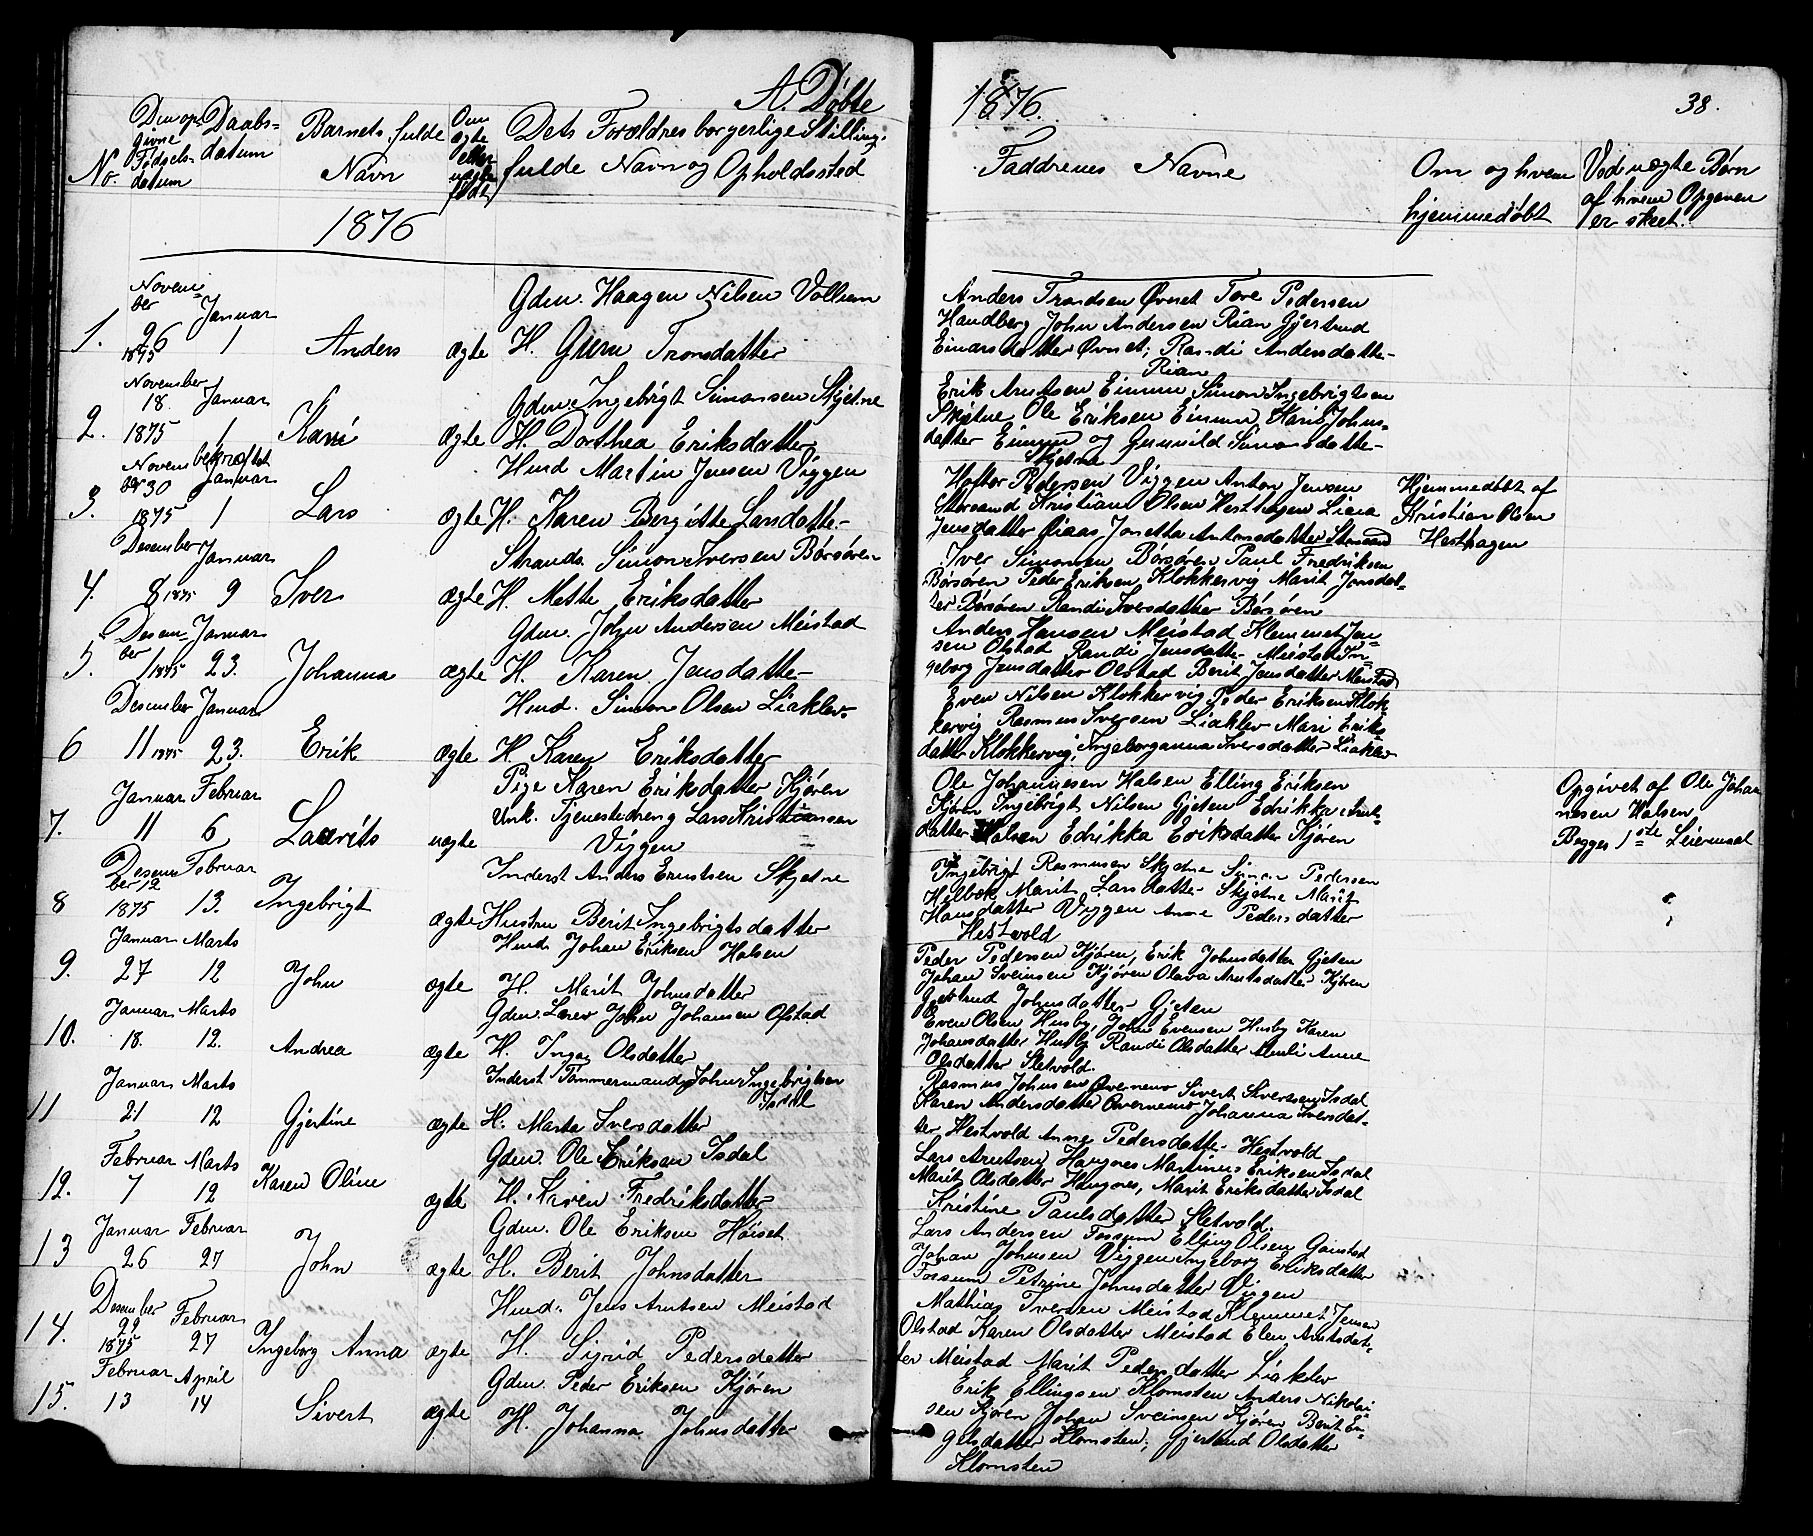 A. Døbte
Den op-
givne
Fødsels-
datum
No.
Daabs-
datum
Barnets fulde
Navn
Om
ægte
eller
uægte
født
Dets Forældres borgerlige Stilling,
fulde Navn og Opholdssted
1876
Novem-
ber Januar
Gdm. Haagen Nilsen Vollum
1. 26 1875 1 Anders ægte H. Guru Tronsdatter
November Januar
Gdm. Ingebrigt Simonsen Skjetne
2. 18. 1875 1 Kari ægte H. Dorthea Eriksdatter
Novem- bekræftet
ber 30 Januar
Husd Martin Jensen Viggen
3. 1875 1 Lars ægte H. Karen Bergitte Larsdatter
Desember Januar
Strands. Simon Iversen Børsøren
4. 8 1875 9 Iver ægte H. Mette Eriksdatter
Desem- Januar
ber
Gdm. John Andersen Meistad
5. 1 1875 23. Johanna ægte H. Karen Jensdatter
Desember Januar
Husd. Simon Olsen Liaklev.
6 11 1875 23. Erik ægte H. Karen Eriksdatter
Januar Februar
Pige Karen Eriksdatter Kjøren
Unk. Tjenestedreng Lars Kristiansen
7. 11 6 Laurits uægte Viggen
Desem- Februar
ber 12
Inderst Anders Erntsen Skjetne
8 1875 13. Ingebrigt ægte Hustru Berit Ingebrigtsdatter
Januar Marts
Husd. Johan Eriksen Halsen
9. 27 12 John ægte H. Marit Johnsdatter
Januar Marts
Gdm. John Johansen Ofstad
10. 18. 12. Andrea ægte H. Inga Olsdatter
Januar Marts
Inderst Tømmermand John Ingebrigtsen
Isdal
11 21 12 Gjertine ægte H. Marta Iversdatter
Februar Marts
Gdm. Ole Eriksen Isdal
12. 7 12 Karen Oline ægte H. Karen Fredriksdatter
Januar Februar
Gdm. Ole Eriksen Høiset
13 26 27 John ægte H. Berit Johnsdatter
Desember Februar
Husd. Jens Arntsen Meistad
14. 29 1875 27 Ingeborg Anna ægte H. Sigrid Pedersdatter
Februar April
Gdm. Peder Eriksen Kjøren
15. 13 14 Sivert ægte H. Johanna Johnsdatter
1876.
38.
Faddrenes Navne
Om og hvem
hjemmedøbt
Ved uægte Børn
af hvem Opgaven
er skeet.
Anders Trondsen Øvret Tore Pedersen
Handberg John Andersen Rian Gjertrud
Einarsdatter Øvret; Randi Andersdatter
Rian
Erik Arntsen Eimun Simon Ingebrigtsen
Skjetne Ole Eriksen Eimun Marit Johns-
datter Eimun og Gunnild Simonsdatter
Skjetne
Pedersen Viggen Anton Jensen
Storsand Kristian Olsen Hesthagen
Jensdatter Jonetta Antonsdatter Storsand
Hjemmedøbt af
Kristian Olsen
Hesthagen
Iver Simonsen Børsøren Paul Fredriksen
Børsøren Peder Eriksen Klokkervig Marit Jonsdat-
ter Børsøren Randi Iversdatter Børsøren
Anders Hansen Meistad Klemmet Jen-
sen Olstad Randi Jensdatter Meistad In-
geborg Jensdatter Olstad Berit Jensdatter Meistad
Even Nilsen Klokkervig Peder Eriksen Klok-
kervig Rasmus Iversen Liaklev Mari Eriks-
datter Klokkervig, Ingeborganna Iversdatter Liaklev
Ole Johannesen Halsen Elling Eriksen
Kjøren Ingebrigt Nilsen Gjeten Edrikka Arnt-
datter Halsen Edrikka Eriksdatter Kjøren
Opgivet af Ole Johan-
nesen Halsen
Begges 1ste Leiermaal
Ingebrigt Rasmusen Skjetne Simon Pedersen
Marit Larsdatter Skjetne Marit
Hansdatter Viggen Anne Pedersdatter
Hestvold
Peder Pedersen Kjøren, Erik Johnsdatter Gjeten
Johan Sveinsen Kjøren Olava Arntsdatter Kjøren
Gjertrud Johnsdatter Gjeten
Even Olsen Husby, Johan Evensen Husby Karen
Johansdatter Husby Randi Olsdatter Anne
Olsdatter Sletvold.
Rasmus Johnsen Sivert Sivertsen Isdal
Karen Andersdatter Johanna Iversdat-
ter Hestvold Anne Pedersdatter Hestvold
Lars Arntsen Haugnes Martinus Eriksen Isdal
Marit Olsdatter Haugnes, Marit Eriksdatter Isdal
Kristine Paulsdatter Sletvold.
Lars Andersen Forsum Elling Olsen
Johan Johnsen Viggen Ingeborg Eriksdatter
Forsum Petrine Johnsdatter Viggen
Mathias Iversen Meistad Klemmet Jensen
Olstad Karen Olsdatter Meistad Elen Arntsdat-
ter Meistad Marit Pedersdatter Liaklev
Erik Ellingsen Klomsten Anders Nikolai-
sen Kjøren Johan Sveinsen Kjøren Berit En-
gelsdatter Klomsten; Gjertrud Olsdatter
Klomsten